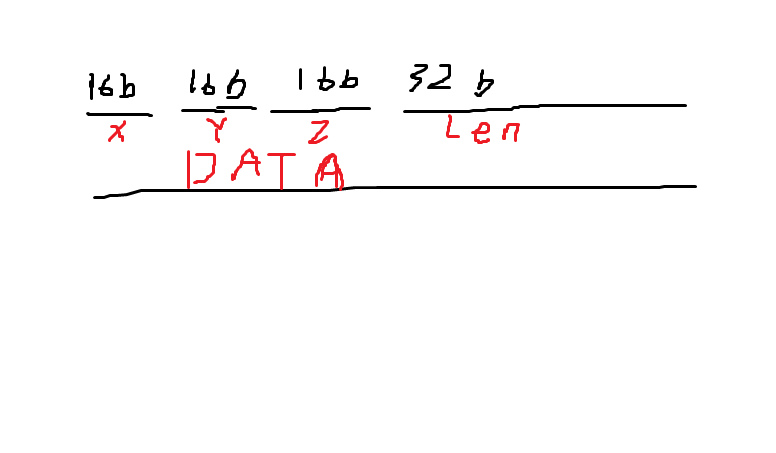 16b 16b 16b 32 b
X Y Z Len
DATA